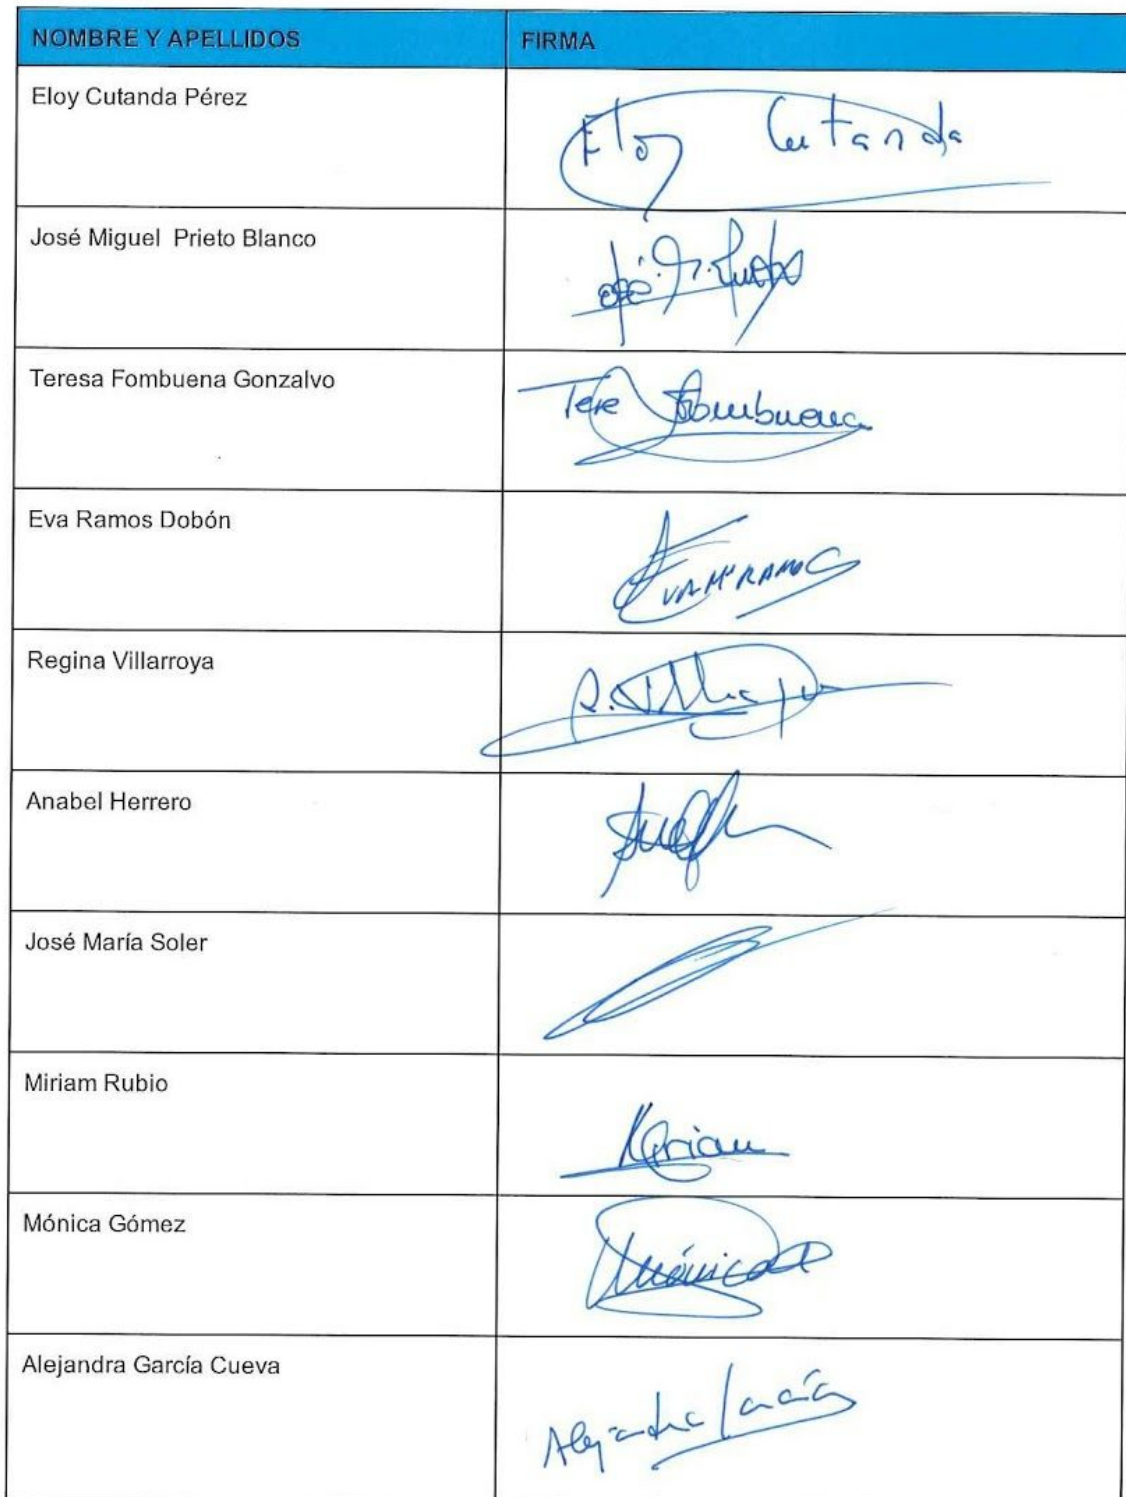 NOMBRE Y APELLIDOS FIRMA
Eloy Cutanda Pérez
Eloy Cutanda
José Miguel Prieto Blanco
José M. Prieto
Teresa Fombuena Gonzalvo
Tere Fombuena
Eva Ramos Dobón
EVA Mª RAMOS
Regina Villarroya
R. Villarroya
Anabel Herrero
José María Soler
Miriam Rubio
Miriam
Mónica Gómez
Mónica
Alejandra García Cueva
Alejandra García